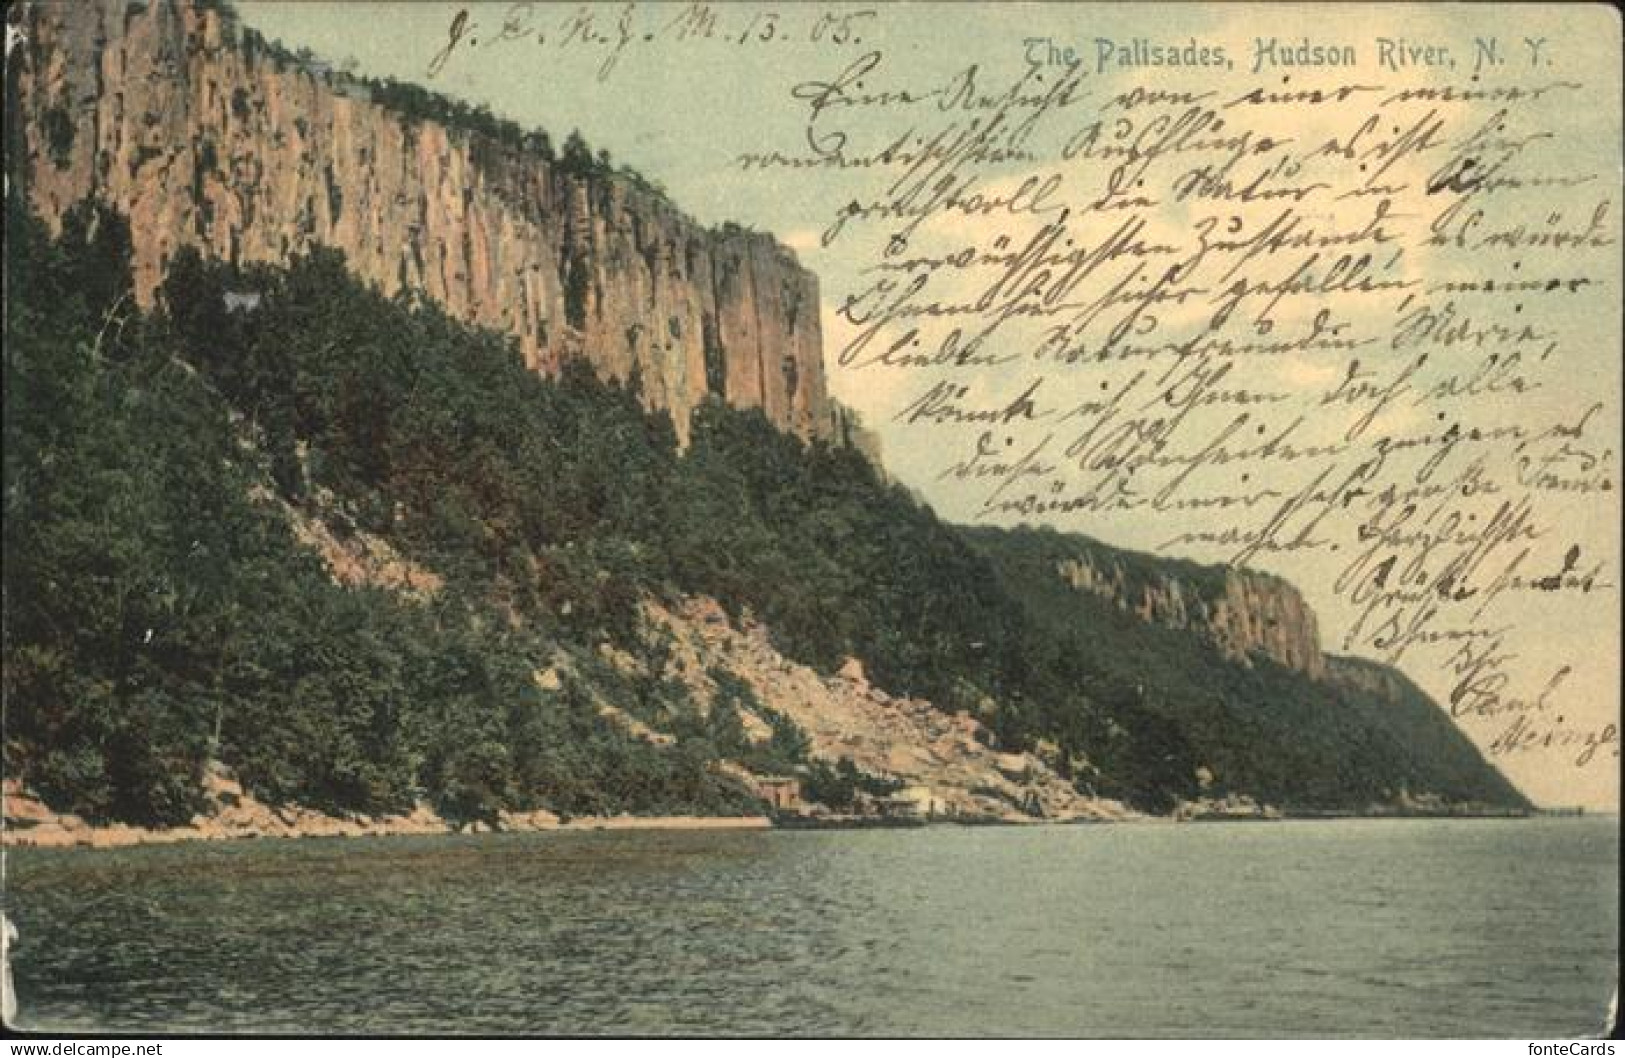 J. C. N. J. M. 13. 05.
The Palisades, Hudson River, N. Y.
Eine Ansicht von einer meiner
romantischsten Ausflüge, es ist hier
prachtvoll, die Natur in ihrem
urwüchsigsten Zustande, es würde
Ihnen hier sicher gefallen, meiner
lieben Naturfreundin Marie,
könnte ich Ihnen doch alle
diese Schönheiten zeigen, es
würde mir sehr große Freude
machen. Herzlichste
Grüße sendet
Ihnen
Ihr
Paul
Heinze.
www.delcampe.net/seller/e-post
fonteCards